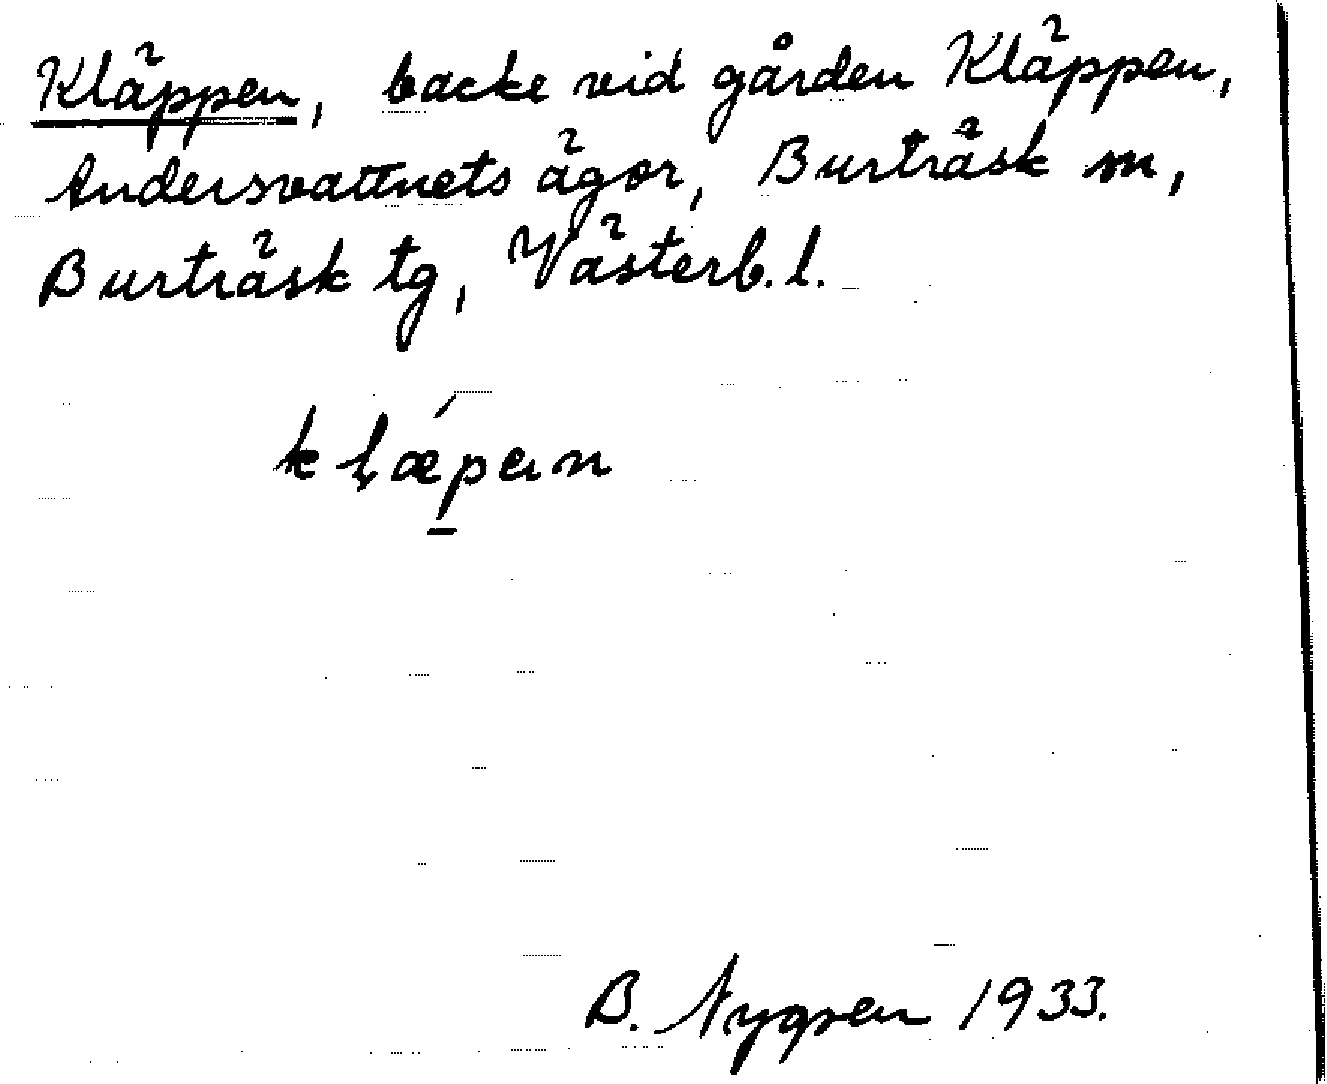 Kläppen, backe vid gården Kläppen,
Andersvattnets ägor, Burträsk sn,
Burträsk tg, Västerb. l.
klæpen
B. Nygren 1933.